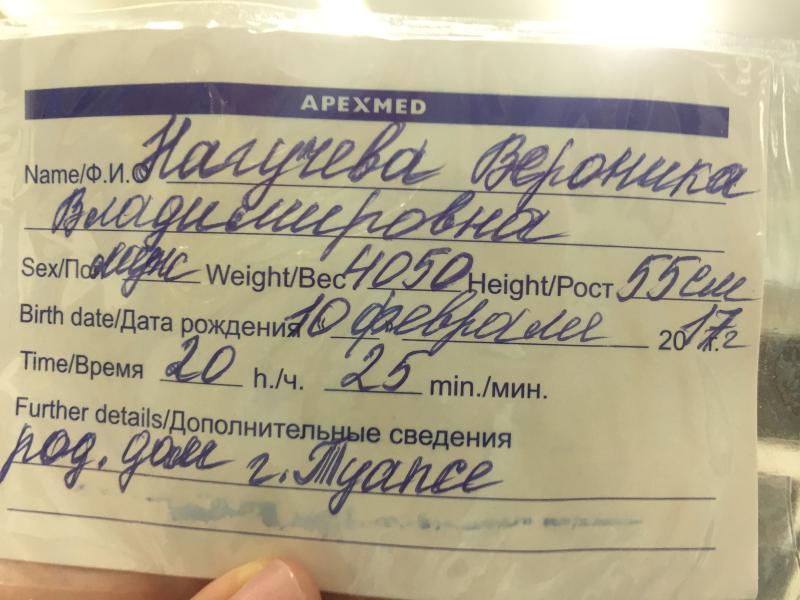 APEXMED
Name/Ф.И.О Нагучева Вероника
Владимировна
Sex/Пол муж Weight/Вес 4050 Height/Рост 55см
Birth date/Дата рождения 10 февраля 2017г.
Time/Время 20 h./ч. 25 min./мин.
Further details/Дополнительные сведения
род. дом г. Туапсе